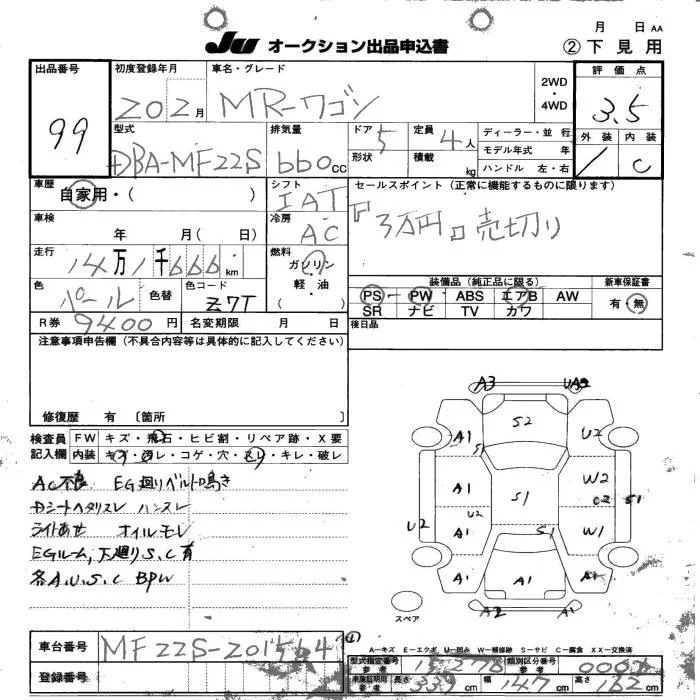 月 日 AA
Ju オークション出品申込書
② 下見用
出品番号
99
初度登録年月
202月
車名・グレード
MR-ワゴン
2WD・4WD
評価点
3.5
外装 内装
C
型式
DBA-MF22S
排気量
660cc
ドア 5
形状
定員 4人
積載 kg
ディーラー・並行
モデル年式 年
ハンドル 左・右
車歴
自家用・( )
シフト
IAT
セールスポイント(正常に機能するものに限ります)
3万円 売切り
車検
年 月( 日)
冷房
AC
走行
14万1千666km
燃料
ガソリン・軽油
( )
色
パール
色替
色コード
Z7T
装備品(純正品に限る)
PS PW ABS エアB AW
SR ナビ TV カワ
新車保証書
有・無
R券 9400円
名変期限 月 日
後日品
注意事項申告欄(不具合内容等は具体的に記入してください)
修復歴 有 〔箇所 〕
検査員記入欄
FW キズ・飛石・ヒビ割・リペア跡・X要
内装 キズ・汚レ・コゲ・穴・スレ・キレ・破レ
AC不良 EG廻りベルト鳴き
Dシートヘタリスレ ハンスレ
ライトあせ オイルモレ
EGルーム,下廻りS.C有
各A.U.S.C BPW
A3
UA3
S2
A1
S1
U2
A1
S1
W2
C2 S1
U2
A1
U2
S1
W1
A1
A1
A1
A2
A1
スペア
A-キズ E-エクボ U-凹み W-補修跡 S-サビ C-腐食 XX-交換済
車台番号
MF22S-201564
登録番号
型式指定番号 参考
15278
類別区分番号 参考
車庫証明用 参考
長さ 339cm
幅 147cm
高さ 162cm